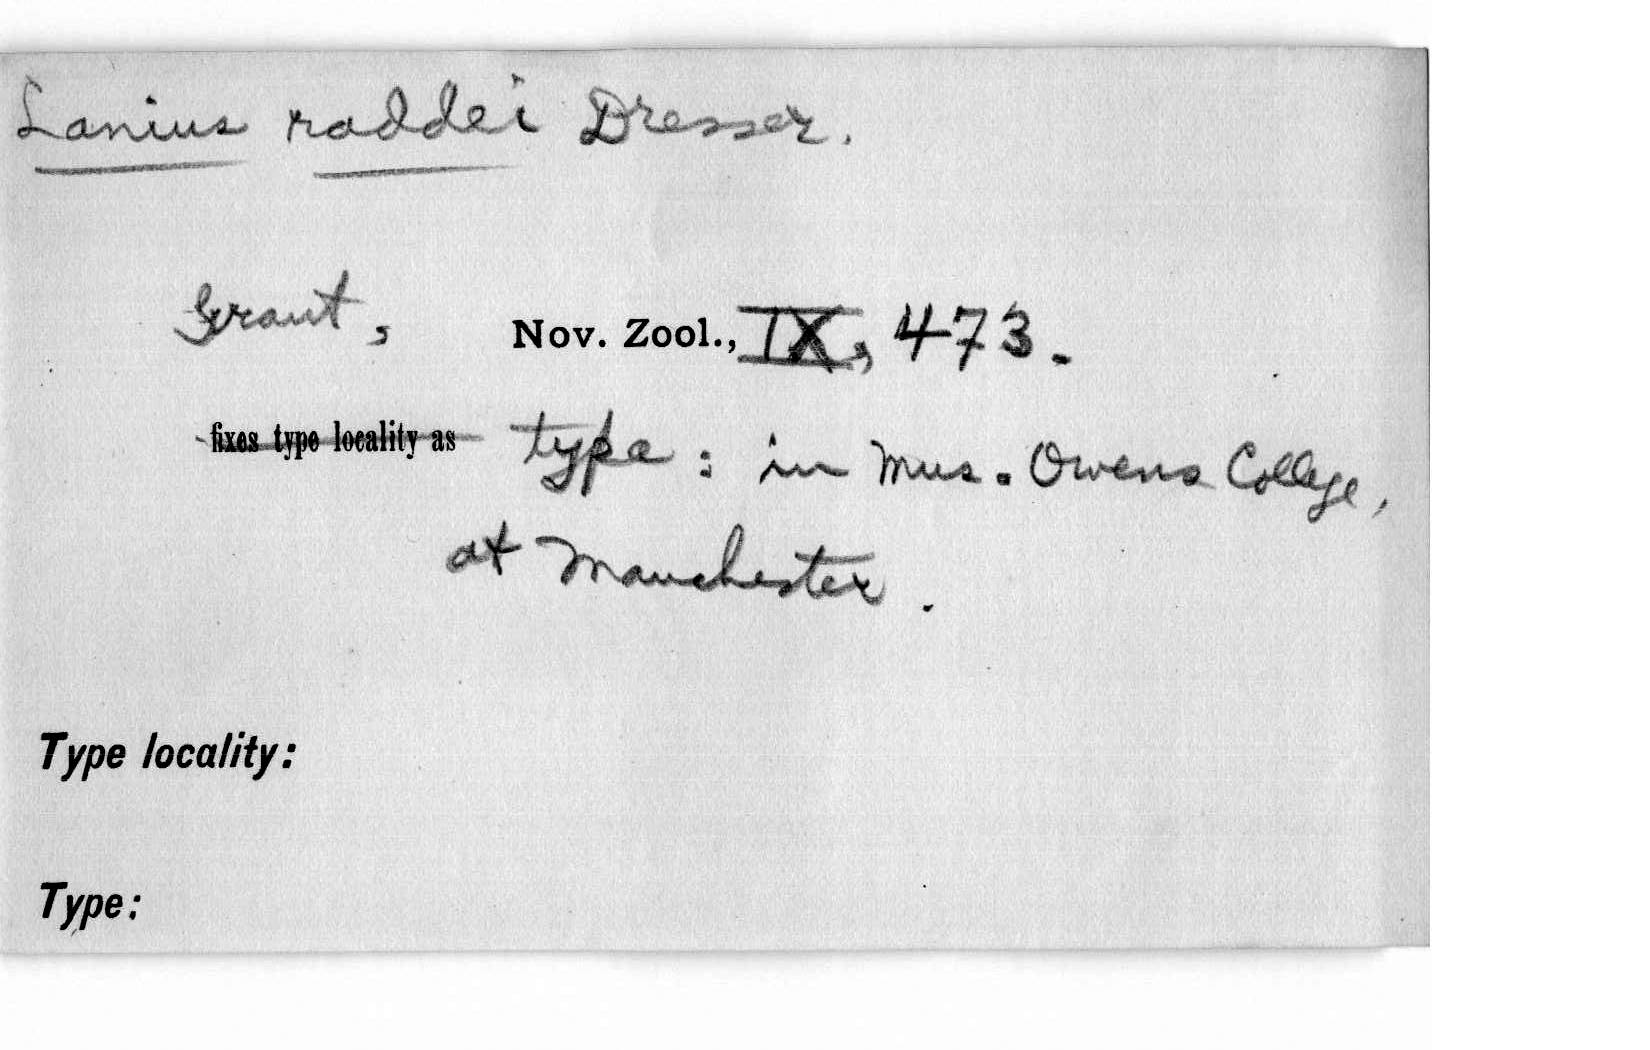 Lanius raddei Dresser.
Grant, Nov. Zool., IX, 473.
fixes type locality as type: in Mus. Owens College,
at Manchester.
Type locality:
Type: